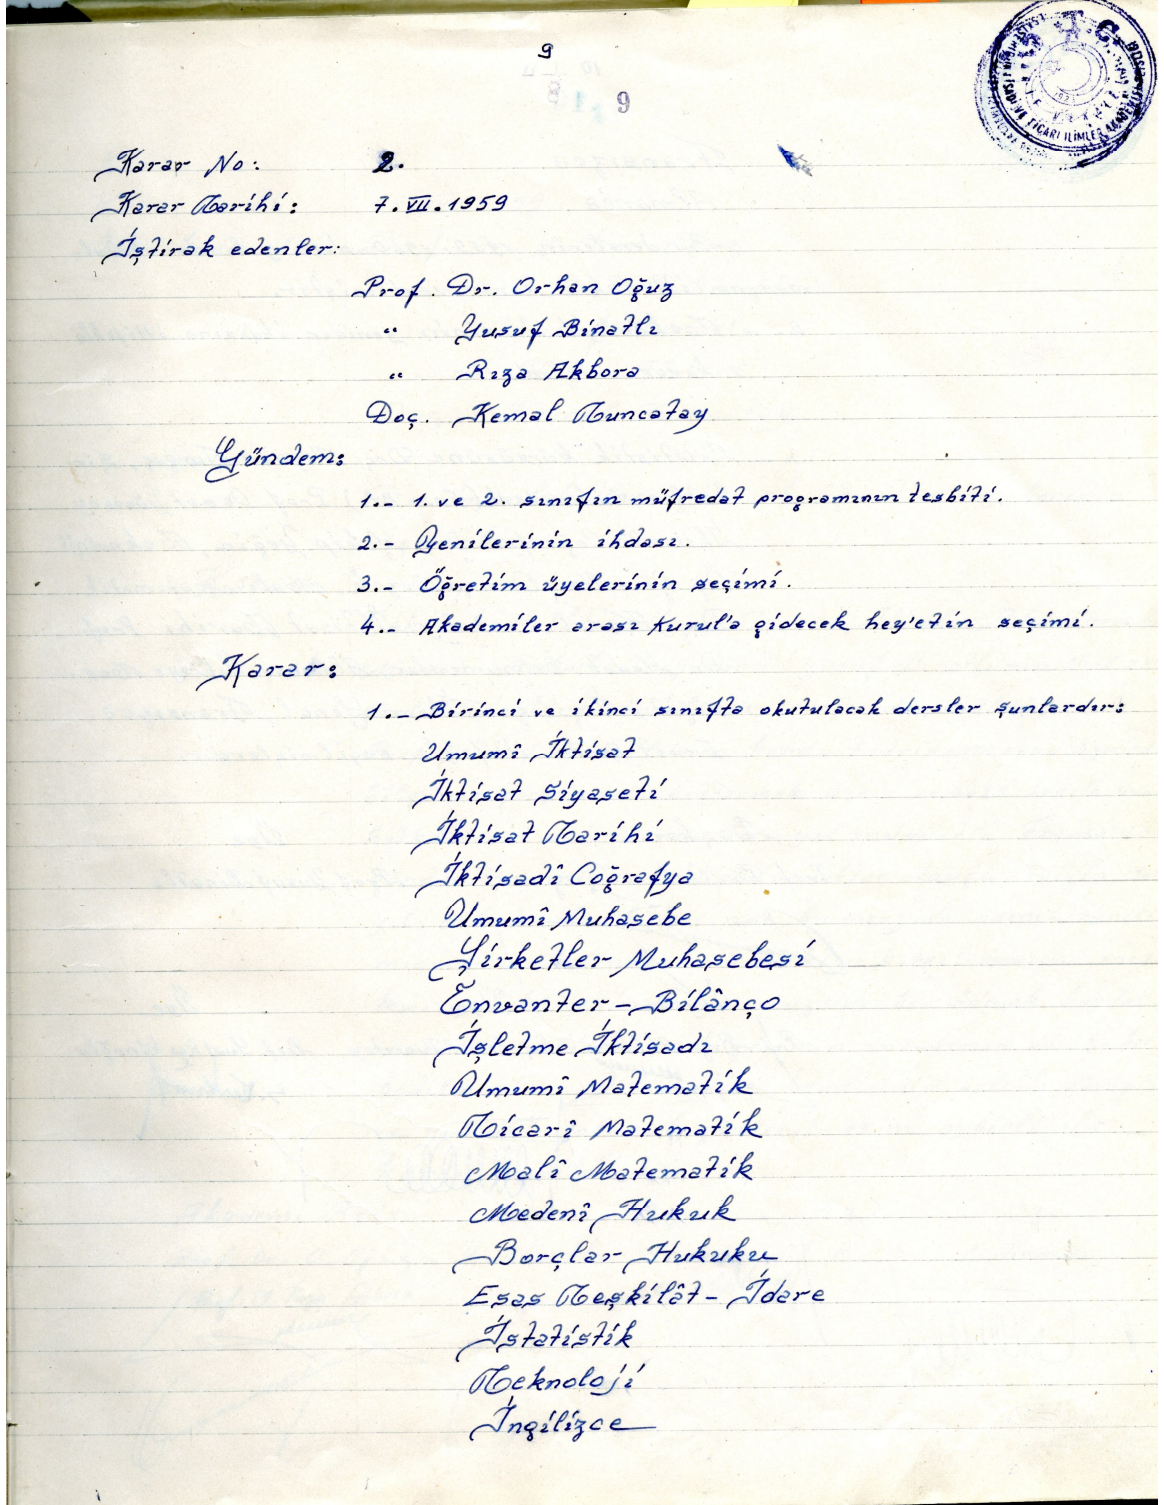 9
9
T.C.
İKTİSADİ VE TİCARİ İLİMLER AKADEMİSİ
Karar No: 2.
Karar Tarihi: 7.VII.1959
İştirak edenler:
Prof. Dr. Orhan Oğuz
" Yusuf Binatlı
" Rıza Akbora
Doç. Kemal Tuncatay
Gündem:
1.- 1. ve 2. sınıfın müfredat programının tesbiti.
2.- Yenilerinin ihdası.
3.- Öğretim üyelerinin seçimi.
4.- Akademiler arası Kurul'a gidecek hey'etin seçimi.
Karar:
1.- Birinci ve ikinci sınıfta okutulacak dersler şunlardır:
Umumî İktisat
İktisat Siyaseti
İktisat Tarihi
İktisadî Coğrafya
Umumî Muhasebe
Şirketler Muhasebesi
Envanter-Bilânço
İşletme İktisadı
Umumî Matematik
Ticarî Matematik
Malî Matematik
Medenî Hukuk
Borçlar Hukuku
Esas Teşkilât-İdare
İstatistik
Teknoloji
İngilizce